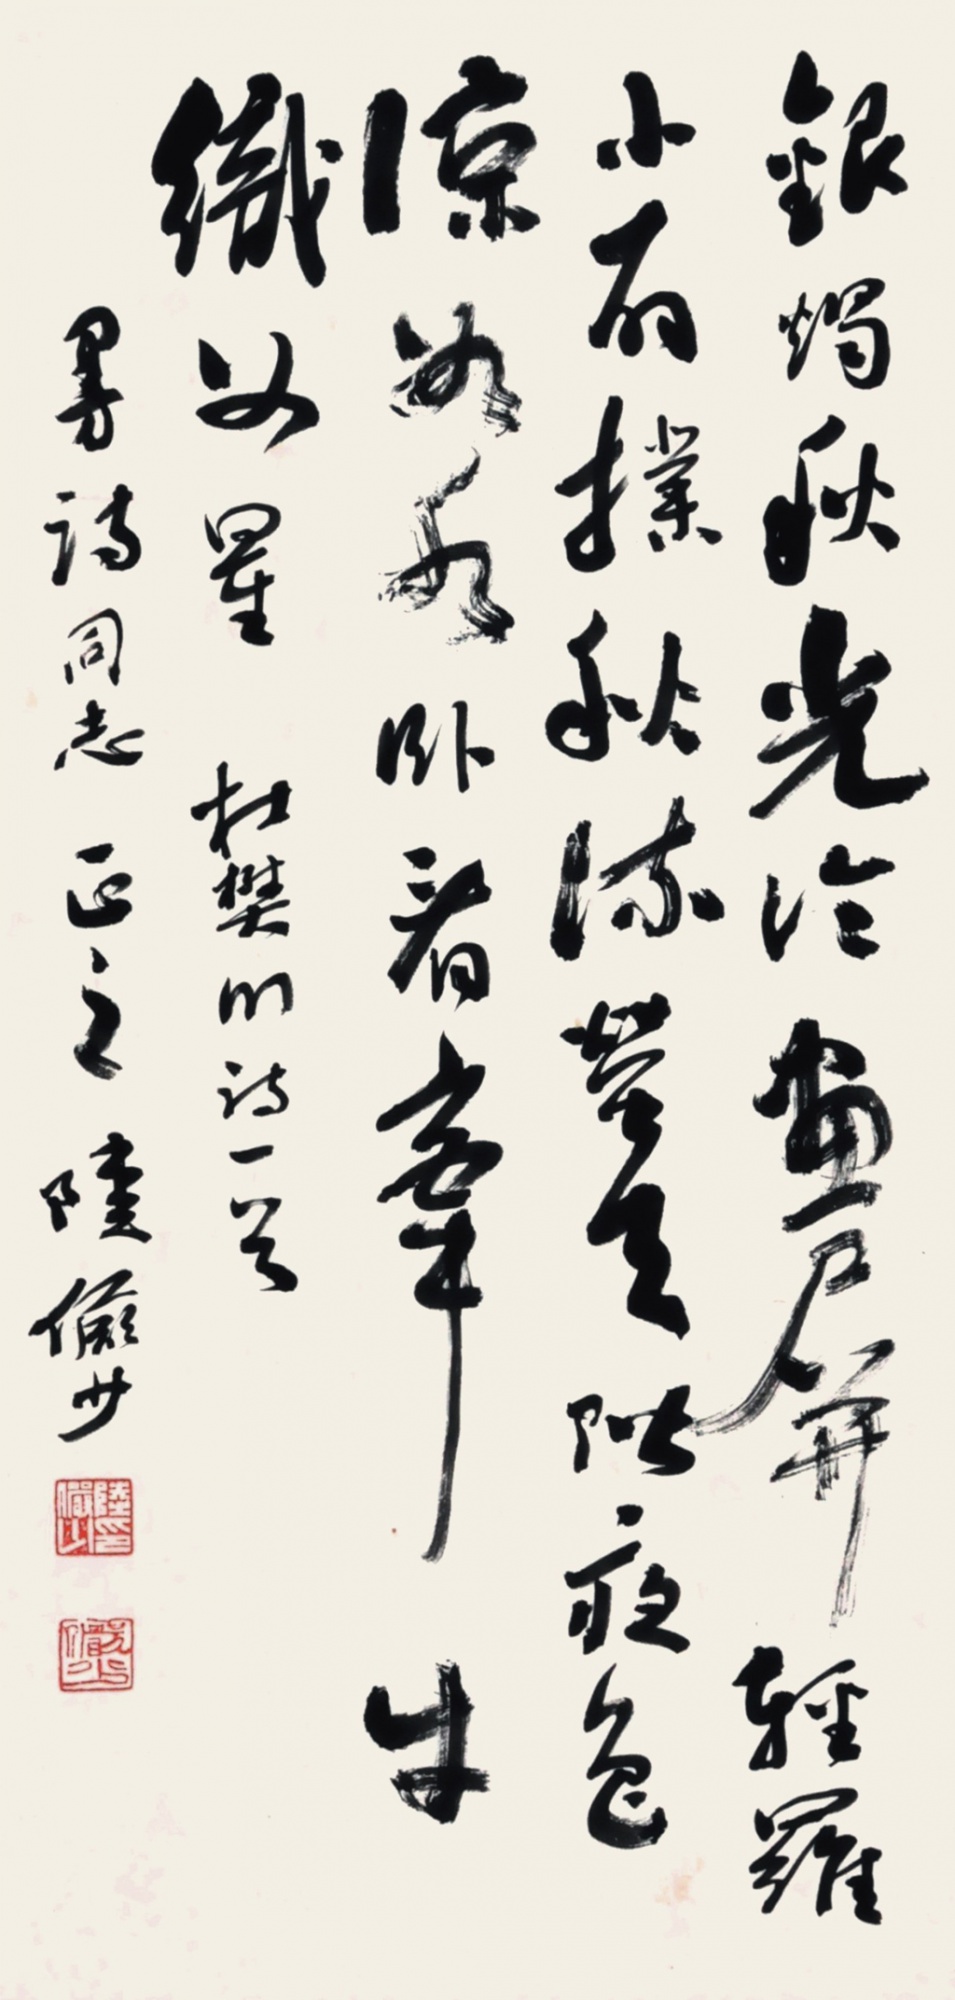 銀燭秋光冷畫屏輕羅
小扇撲秋流螢天階夜色
涼如水卧看牽牛
織女星 杜樊川詩一首
曼詩同志正之 陸儼少